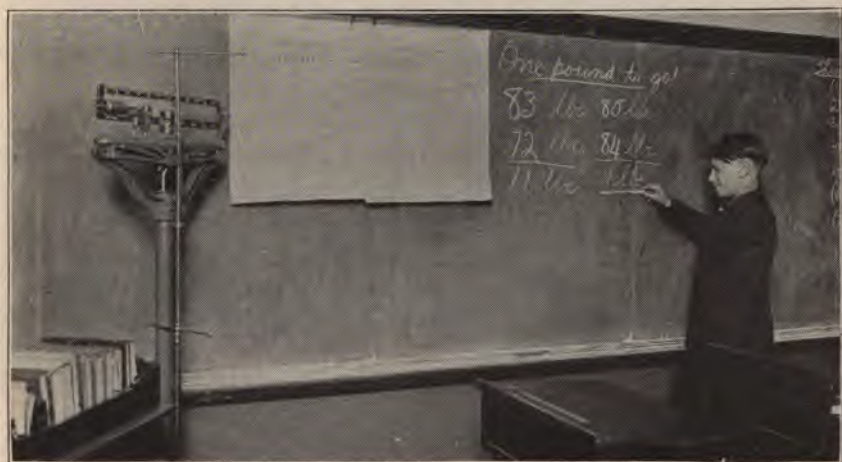 One pound to go!
83 lbs 85 lbs
72 lbs 84 lbs
11 lbs 1 lb